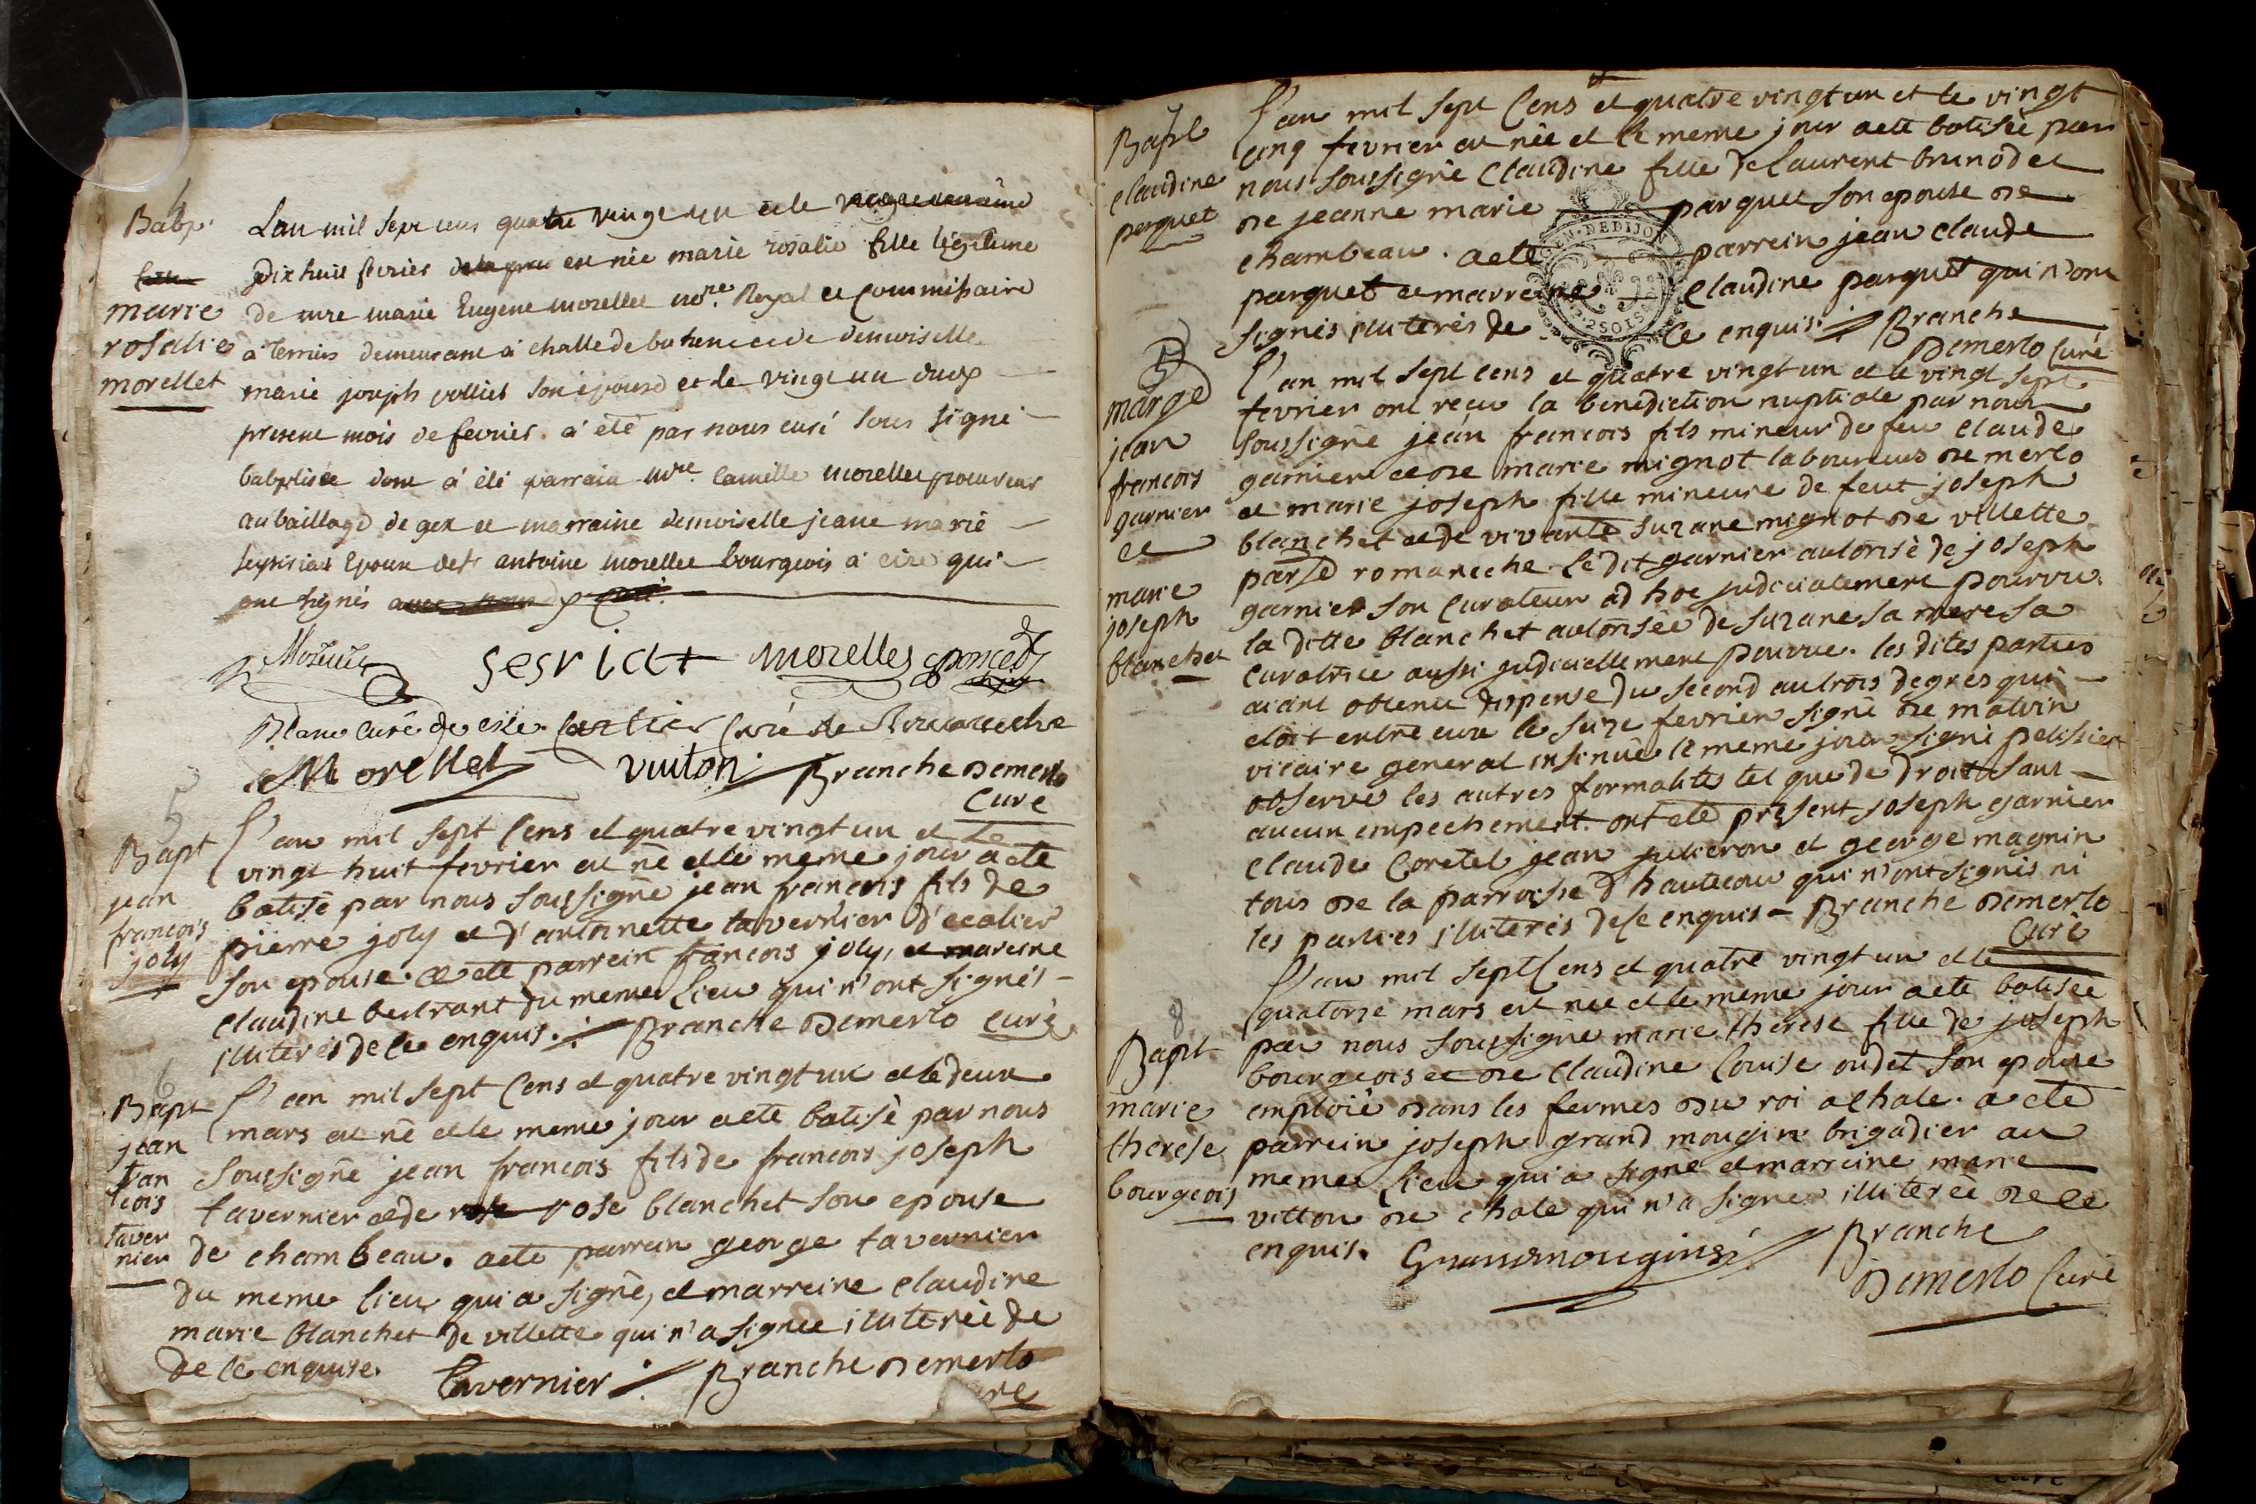 4
Bapt.
marie
rosalie
morellet
L'an mil sept cens quatre vingt un et le
dix huit fevrier est née marie rosalie fille légitime
de mre marie Eugene morellet nore Royal et Commissaire
à Terrier demeurant à challe de bohenc et de demoiselle
marie joseph pollier son épouse et le vingt un dud
present mois de fevrier a été par nous curé sous signé
baptisée dont a été parrain mre Camille morellet procureur
au bailliage de gex et marraine demoiselle jeane marie
epouse de sr antoine morellet bourgeois à cize qui
ont signés
Morellet sesriat morellet
Blanc Curé de cize Cartier Curé de Romaneche
Morellet vuiton Branche Demerlo
Curé
5
Bapt
jean
francois
joly
L'an mil sept Cens et quatre vingt un et le
vingt huit fevrier est né et le meme jour a ete
batisé par nous soussigné jean francois fils de
pierre joly et d'antoinette tavernier d'ecolier
son epouse. a ete parrein francois joly, et mareine
claudine bertrant du meme lieu qui n'ont signés
illiterés de ce enquis. Branche Demerlo curé
6
Bapt
jean
fran
cois
taver
nier
L'an mil sept Cens et quatre vingt un et le deux
mars est né et le meme jour a ete batisé par nous
soussigné jean francois fils de francois joseph
tavernier et de rose blanchet son epouse
de chambeau. a ete parrein george tavernier
du meme lieu qui a signé, et marreine claudine
marie blanchet de villette qui n'a signée illiterée de
de ce enquise. tavernier Branche Demerlo
Curé
7
Bapt
claudine
parquet
L'an mil sept Cens et quatre vingt un et le vingt
cinq fevrier est née et le meme jour a ete batisée par
nous soussigné Claudine fille de laurent brunod et
de jeanne marie parquet son epouse de
chambeau. a ete parrein jean claude
parquet et marreine Claudine parquet qui n'ont
signés illiterés de ce enquis. Branche
Demerlo Curé
marge
jean
francois
garnier
et
marie
joseph
blanchet
L'an mil sept cens et quatre vingt un et le vingt sept
fevrier ont recu la benediction nuptiale par nous
soussigné jean francois fils mineur de feu claude
garnier et de marie mignot laboureurs de merlo
et marie joseph fille mineure de feut joseph
blanchet et de vivante suzane mignot de villette
parse romaneche. le dit garnier autorisé de joseph
garnier son curateur ad hoc judicialement pourvu
la ditte blanchet autorisée de suzane sa mere sa
curatrice aussi judiciellement pourvue. les dites parties
aiant obtenu dispense du second au trois degres qui
etoit entre eux le seize fevrier signé de malvin
vicaire general insinué le meme jour signé pelissier
observé les autres formalités tel que de droit sans
aucun empechement. ont ete present joseph garnier
claude Coretel jean julieron et george magnin
tous de la parroisse d'hautecour qui n'ont signés ni
les parties illiterés de ce enquis Branche Demerlo
Curé
8
Bapt
marie
therese
bourgeois
L'an mil sept Cens et quatre vingt un et le
quatorze mars est née et le meme jour a ete batisée
par nous soussigné marie therese fille de joseph
bourgeois et de claudine louise oudet son epouse
emploié dans les fermes du roi a chale. a ete
parrein joseph grand mougin brigadier au
meme lieu qui a signé et marreine marie
vitton de chale qui n'a signée illiterée de ce
enquis. Grandmougin Branche
Demerlo Curé